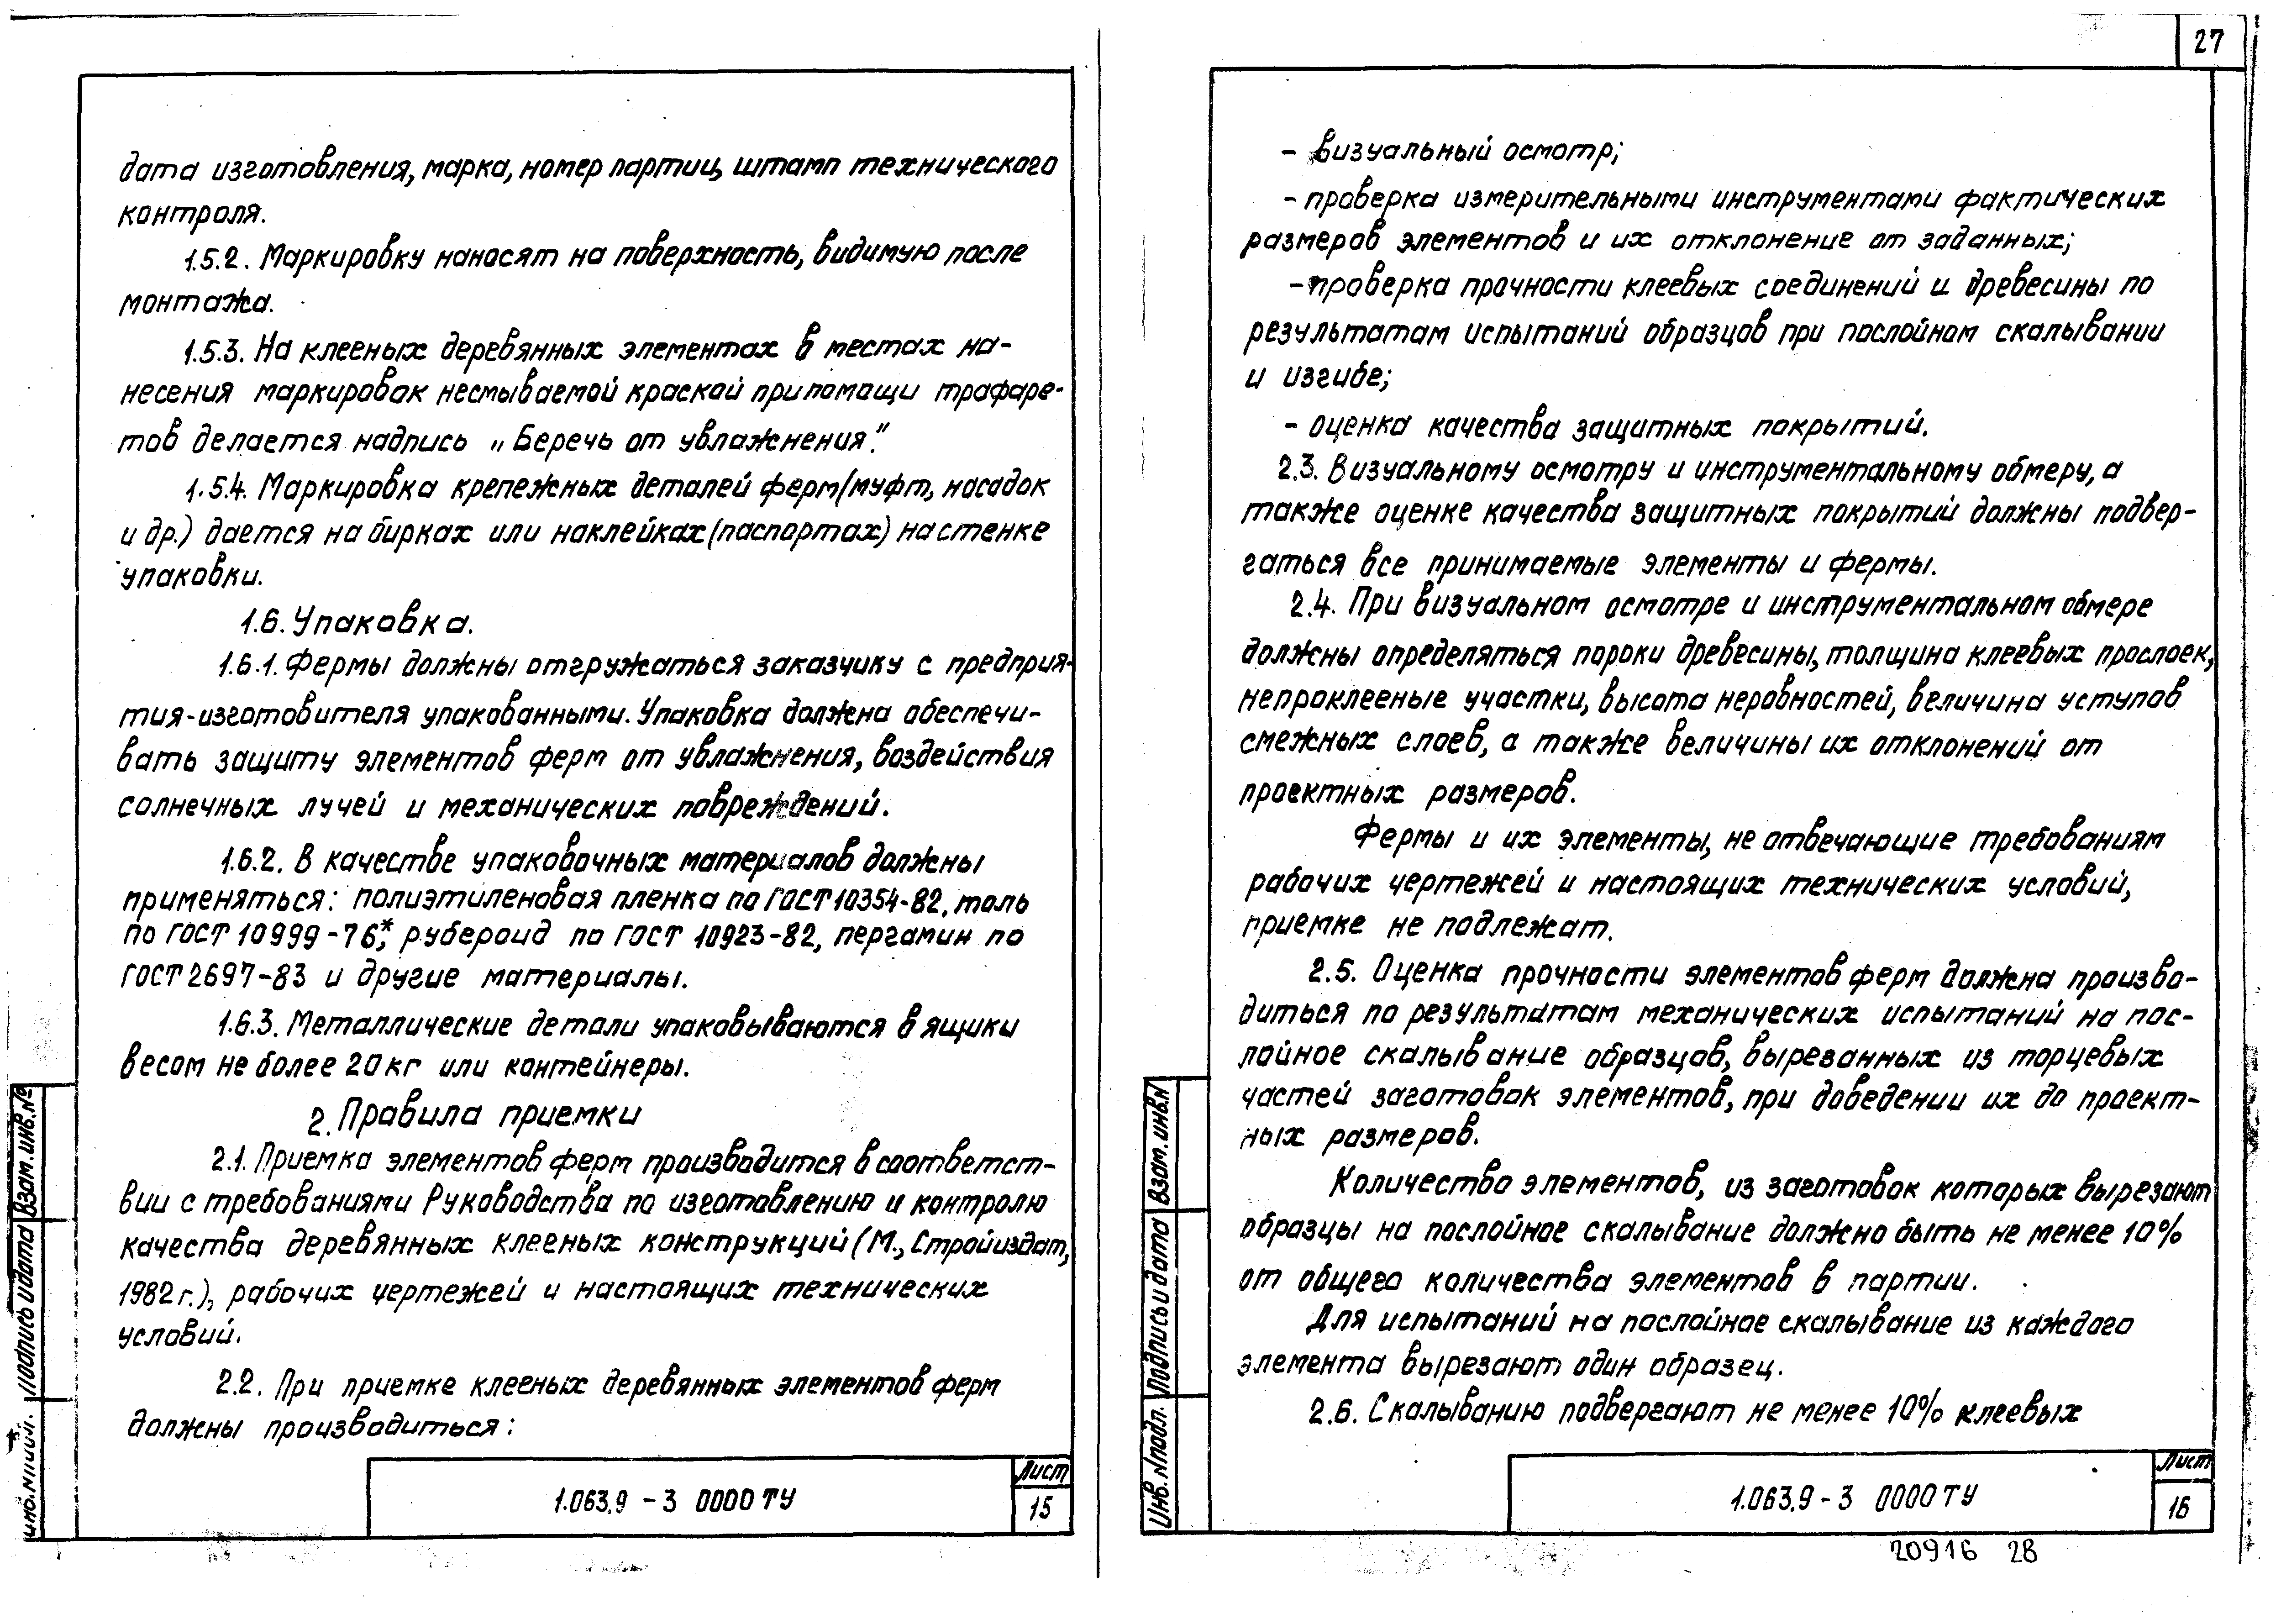 дата изготовления, марка, номер партии, штамп технического
контроля.
1.5.2. Маркировку наносят на поверхность, видимую после
монтажа.
1.5.3. На клееных деревянных элементах в местах на-
несения маркировок несмываемой краской при помощи трафаре-
тов делается надпись „Беречь от увлажнения."
1.5.4. Маркировка крепежных деталей ферм/муфт, насадок
и др.) дается на бирках или наклейках (паспортах) на стенке
упаковки.
1.6. Упаковка.
1.6.1. Фермы должны отгружаться заказчику с предприя-
тия-изготовителя упакованными. Упаковка должна обеспечи-
вать защиту элементов ферм от увлажнения, воздействия
солнечных лучей и механических повреждений.
1.6.2. В качестве упаковочных материалов должны
применяться: полиэтиленовая пленка по ГОСТ 10354-82, толь
по ГОСТ 10999-76*, рубероид по ГОСТ 10923-82, пергамин по
ГОСТ 2697-83 и другие материалы.
1.6.3. Металлические детали упаковываются в ящики
весом не более 20 кг или контейнеры.
2. Правила приемки
2.1. Приемка элементов ферм производится в соответст-
вии с требованиями Руководства по изготовлению и контролю
качества деревянных клееных конструкций (М., Стройиздат,
1982 г.), рабочих чертежей и настоящих технических
условий.
2.2. При приемке клееных деревянных элементов ферм
должны производиться:
Взам. инв. №
Подпись и дата
Инв. № подл.
1.063.9-3 0000 ТУ
Лист
15
27
- визуальный осмотр;
- проверка измерительными инструментами фактических
размеров элементов и их отклонение от заданных;
- проверка прочности клеевых соединений и древесины по
результатам испытаний образцов при послойном скалывании
и изгибе;
- оценка качества защитных покрытий.
2.3. Визуальному осмотру и инструментальному обмеру, а
также оценке качества защитных покрытий должны подвер-
гаться все принимаемые элементы и фермы.
2.4. При визуальном осмотре и инструментальном обмере
должны определяться пороки древесины, толщина клеевых прослоек,
непроклееные участки, высота неровностей, величина уступов
смежных слоев, а также величины их отклонений от
проектных размеров.
Фермы и их элементы, не отвечающие требованиям
рабочих чертежей и настоящих технических условий,
приемке не подлежат.
2.5. Оценка прочности элементов ферм должна произво-
диться по результатам механических испытаний на пос-
лойное скалывание образцов, вырезанных из торцевых
частей заготовок элементов, при доведении их до проект-
ных размеров.
Количество элементов, из заготовок которых вырезают
образцы на послойное скалывание должно быть не менее 10%
от общего количества элементов в партии.
Для испытаний на послойное скалывание из каждого
элемента вырезают один образец.
2.6. Скалыванию подвергают не менее 10% клеевых
Взам. инв. N
Подпись и дата
Инв. N подл.
1.063.9-3 0000 ТУ
Лист
16
20916 28